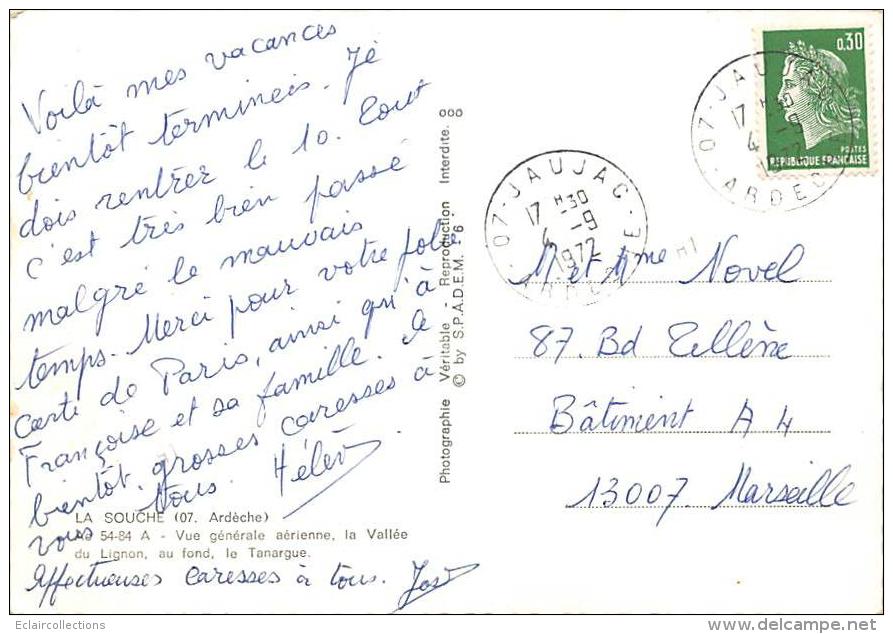 Voilà mes vacances
bientôt terminées. Je
dois rentrer le 10. Tout
c'est très bien passé
malgré le mauvais
temps. Merci pour votre jolie
carte de Paris, ainsi qu'à
Françoise et sa famille. A
bientôt. grosses caresses à
vous tous. Hélèn
LA SOUCHE (07. Ardèche)
54-84 A - Vue générale aérienne, la Vallée
du Lignon, au fond, le Tanargue.
Affectueuses caresses à tous.
Photographie Véritable - Reproduction Interdite.
© by S.P.A.D.E.M. - 6
07-JAUJAC
17 H30
4 -9
1972
ARDECHE
0,30
POSTES
REPUBLIQUE FRANÇAISE
07-JAUJAC
17 H30
4 -9
1972
ARDECHE
M et Mme Novel
87. Bd Tellène
Bâtiment A 4
13007. Marseille
Eclaircollections
www.delcampe.net